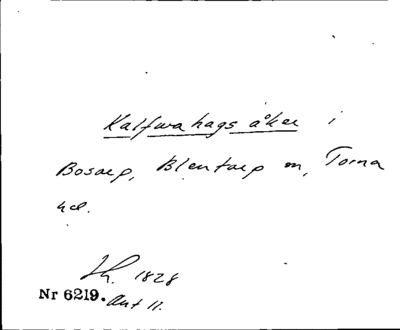 Kalfwahags åker i
Bosarp, Blentarp sn, Torna
hd.
1828
Nr 6219. Akt 11.